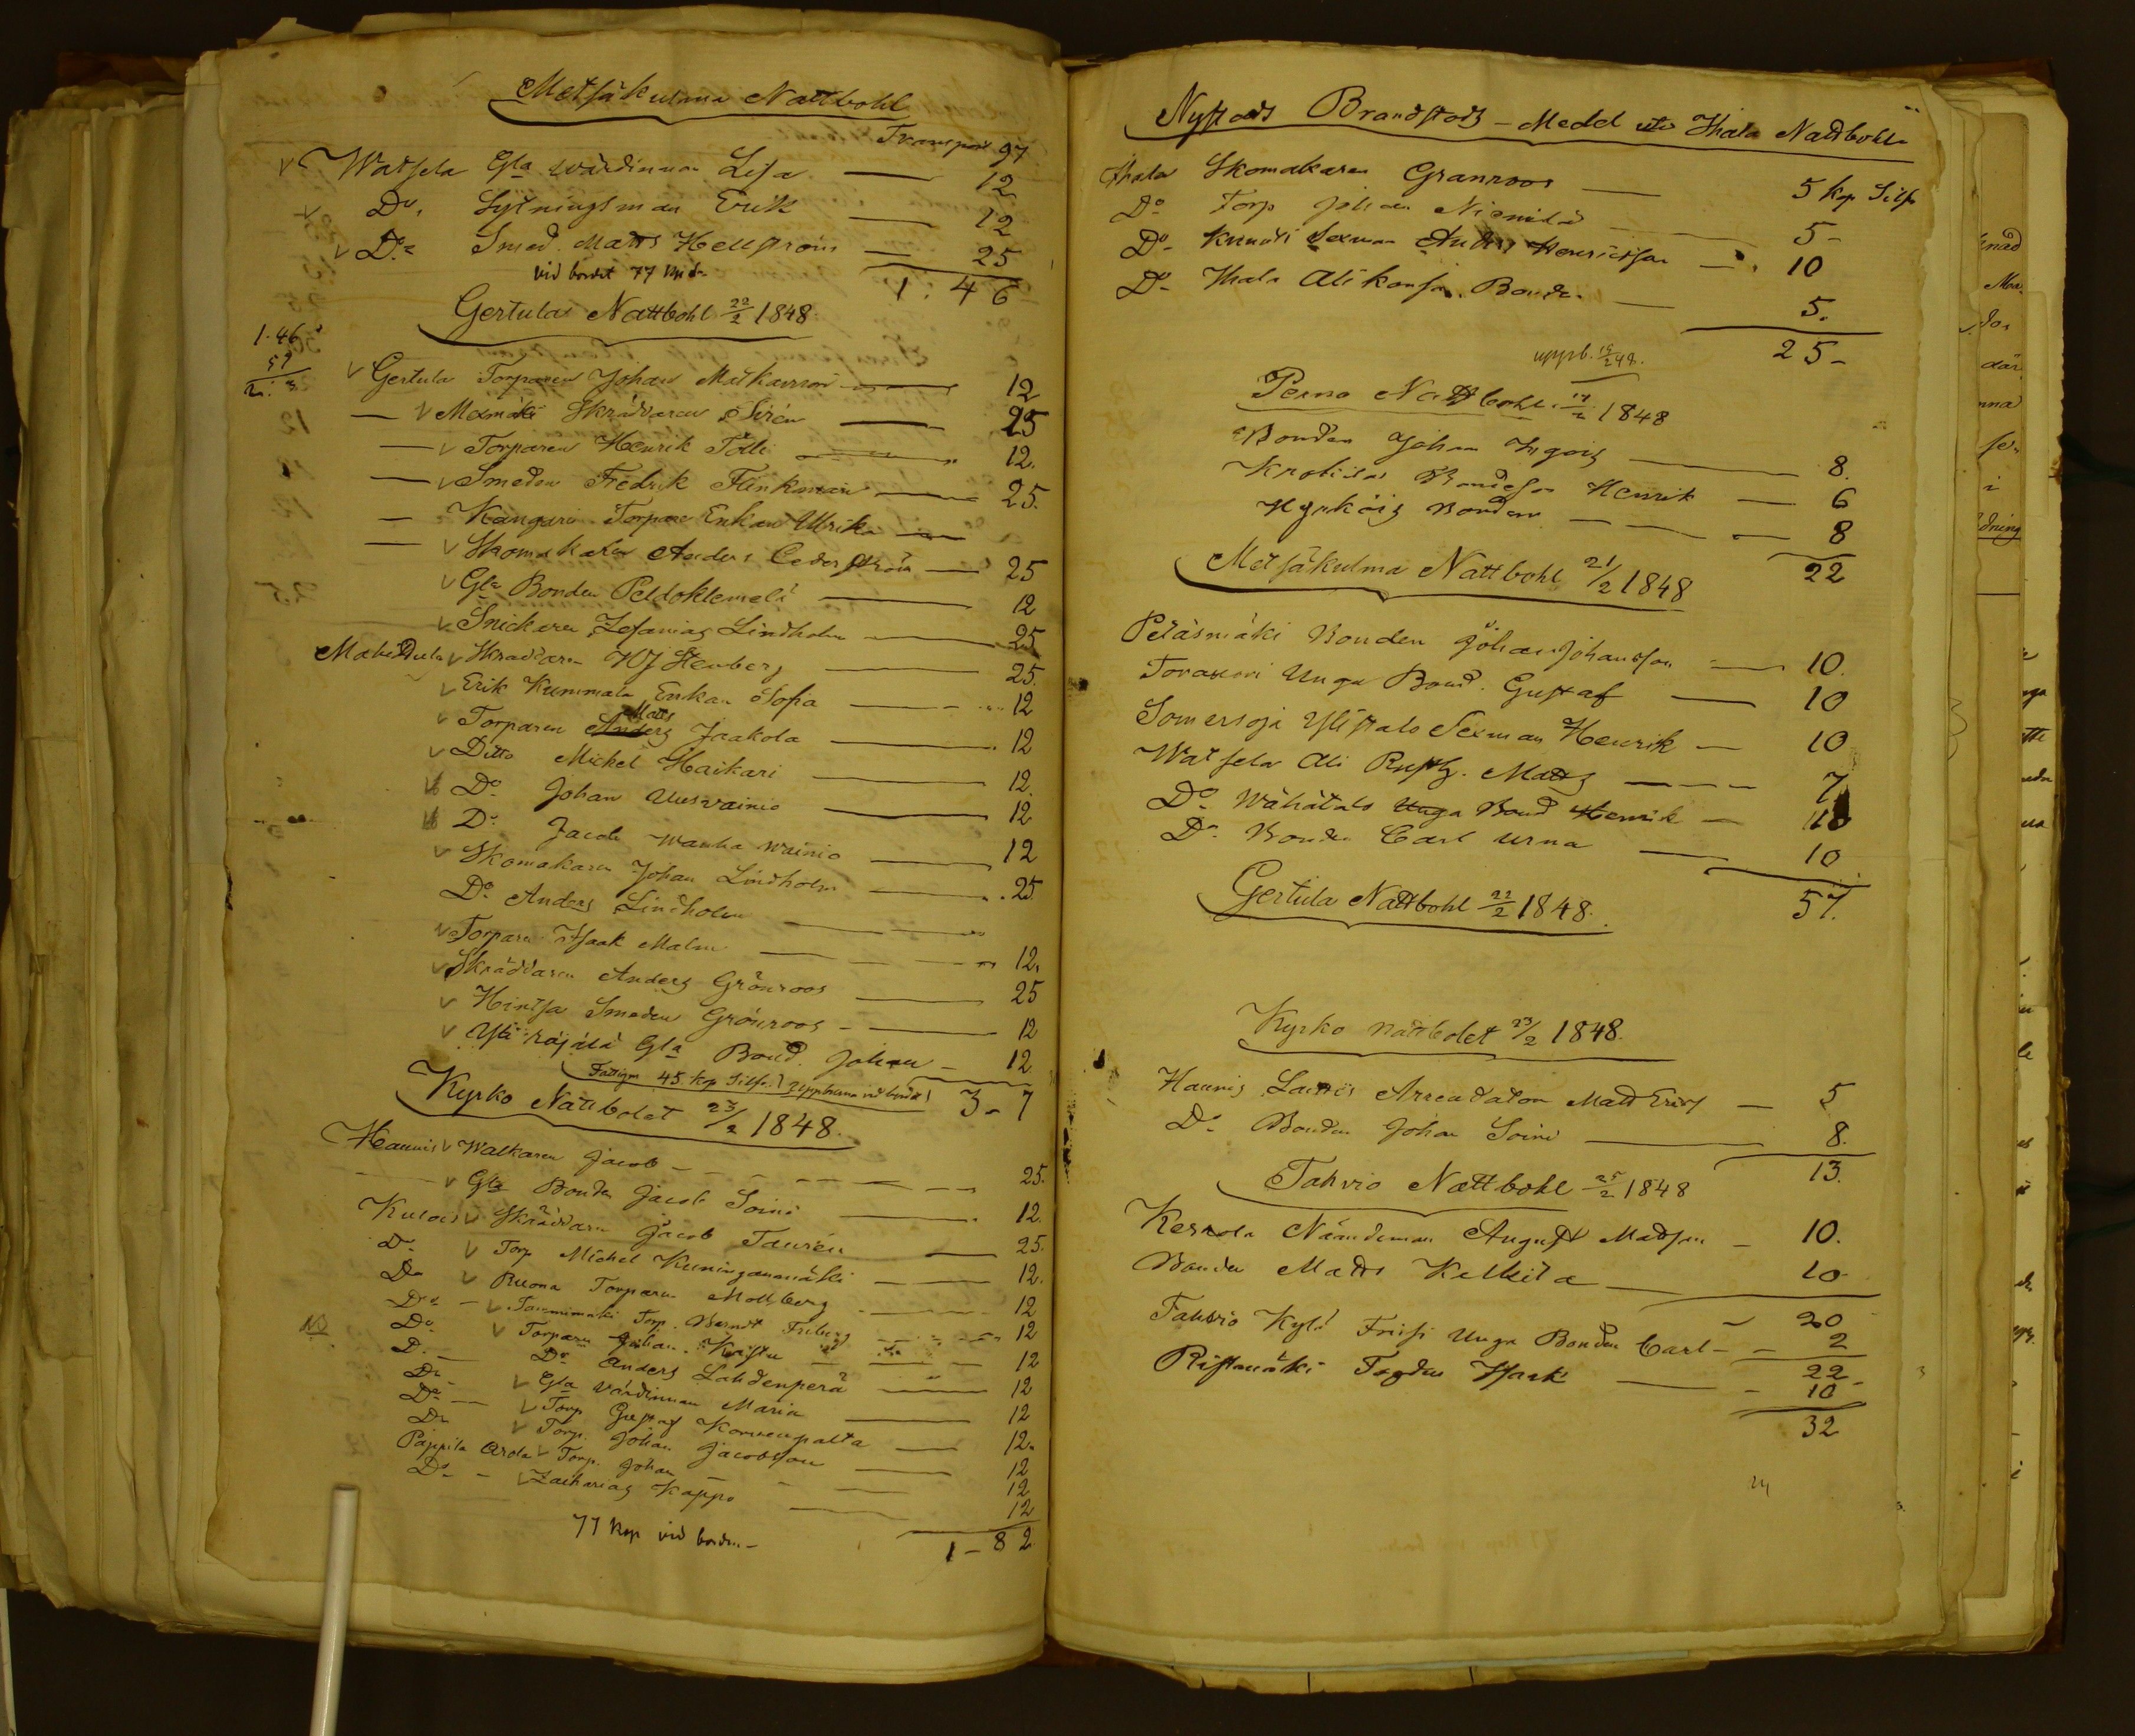 Metsäkulma Nattbohl
Transport 97
Watsela Gla wärdinnan Lisa — 12
Do. Sytningsman Erik — 12
Do Smed. Matts Hellström — 25
vid bordet 77 1. 46
Gertula Nattbohl 22/2 1848
1.46
57
Gertula Torparen Johan — 12
— Skräddaren Sirén — 25
— Torparen Henrik Tolli — 12.
— Smeden Fredrik Flinkman — 25.
— Kangari Torpare Enkan Ulrika —
— Skomakaren Anders Cederström — 25
Gla Bonden Peldoklemelä — 12
Snickaren Zefanias Lindholm — 25
Skraddaren Stenberg — 25.
Erik Kummala Enkan Sofia — 12
Torparen Anders Matts Jaakola — 12
Ditto Michel Haikari — 12.
Do Johan Uusvainio — 12
Do Jacob Wanha Wainio — 12
Skomakaren Johan Lindholm — 25
Do Anders Lindholm —
Torpare Isaak Malm — 12.
Skräddaren Anders Grönroos — 25
Hintsa Smeden Grönroos — 12
Gla Bond. Johan — 12
45 kop Silfr. 3 - 7
Kyrko Nattbolet 23/2 1848.
Haunis Walkaren Jacob — 25.
Gla Bonden Jacob Soini — 12.
Skräddaren Jacob Taurén — 25.
Do Torp Michel Kuninganmäki — 12.
Do Ruona Torparen Mollberg — 12
Do — Tammimäki Torp. Berndt Friberg — 12
NB. Do Torparen Johan — 12
D. — Do Anders Lahdenperä — 12
Do Gla Värdinnan Maria — 12
Do — Torp Gustaf — 12.
Do Torp. Johan Jacobsson — 12
Pappila Arola Torp. Johan — 12
Do - Zacharias Kappo — 12
77 kop vid bordet - 1 - 82
Nystads Brandstods - Medel uti Ihala Nattbohl
Ihala Skomakaren Granroos — 5 kop Silfr
Do Torp Johan Niemilä — 5 -
Do Sexman Anders Henricsson — 10
Do Ihala Ali Bonden — 5.
25 -
uppb. 48.
Perno Nattbohl 1848
Bonden Johan — 8.
Bondeson Henrik — 6
Bonden — 8
22
Metsäkulma Nattbohl 21/2 1848
Petäsmäki Bonden Johan Johansson — 10.
Unga Bond. Gustaf — 10
Somersoja Ylistalo Sexman Henrik — 10
Watsela Ali Rusth. Matts — 7
Do Wähätalo Unga Bond Henrik — 10
Do Bonden Carl Urna — 10
57.
Gertula Nattbohl 22/2 1848.
Kyrko Nattbolet 23/2 1848.
Haunis Arrendatorn Matts — 5
Do Bonden Johan Soini — 8.
13.
Tahvio Nattbohl 25/2 1848
Nämdeman August Matsson — 10.
Bonden Matts — 10
20
Tahvio Kylä Unga Bonden Carl — 2
22 -
Ristimäki Isaak — 10
32